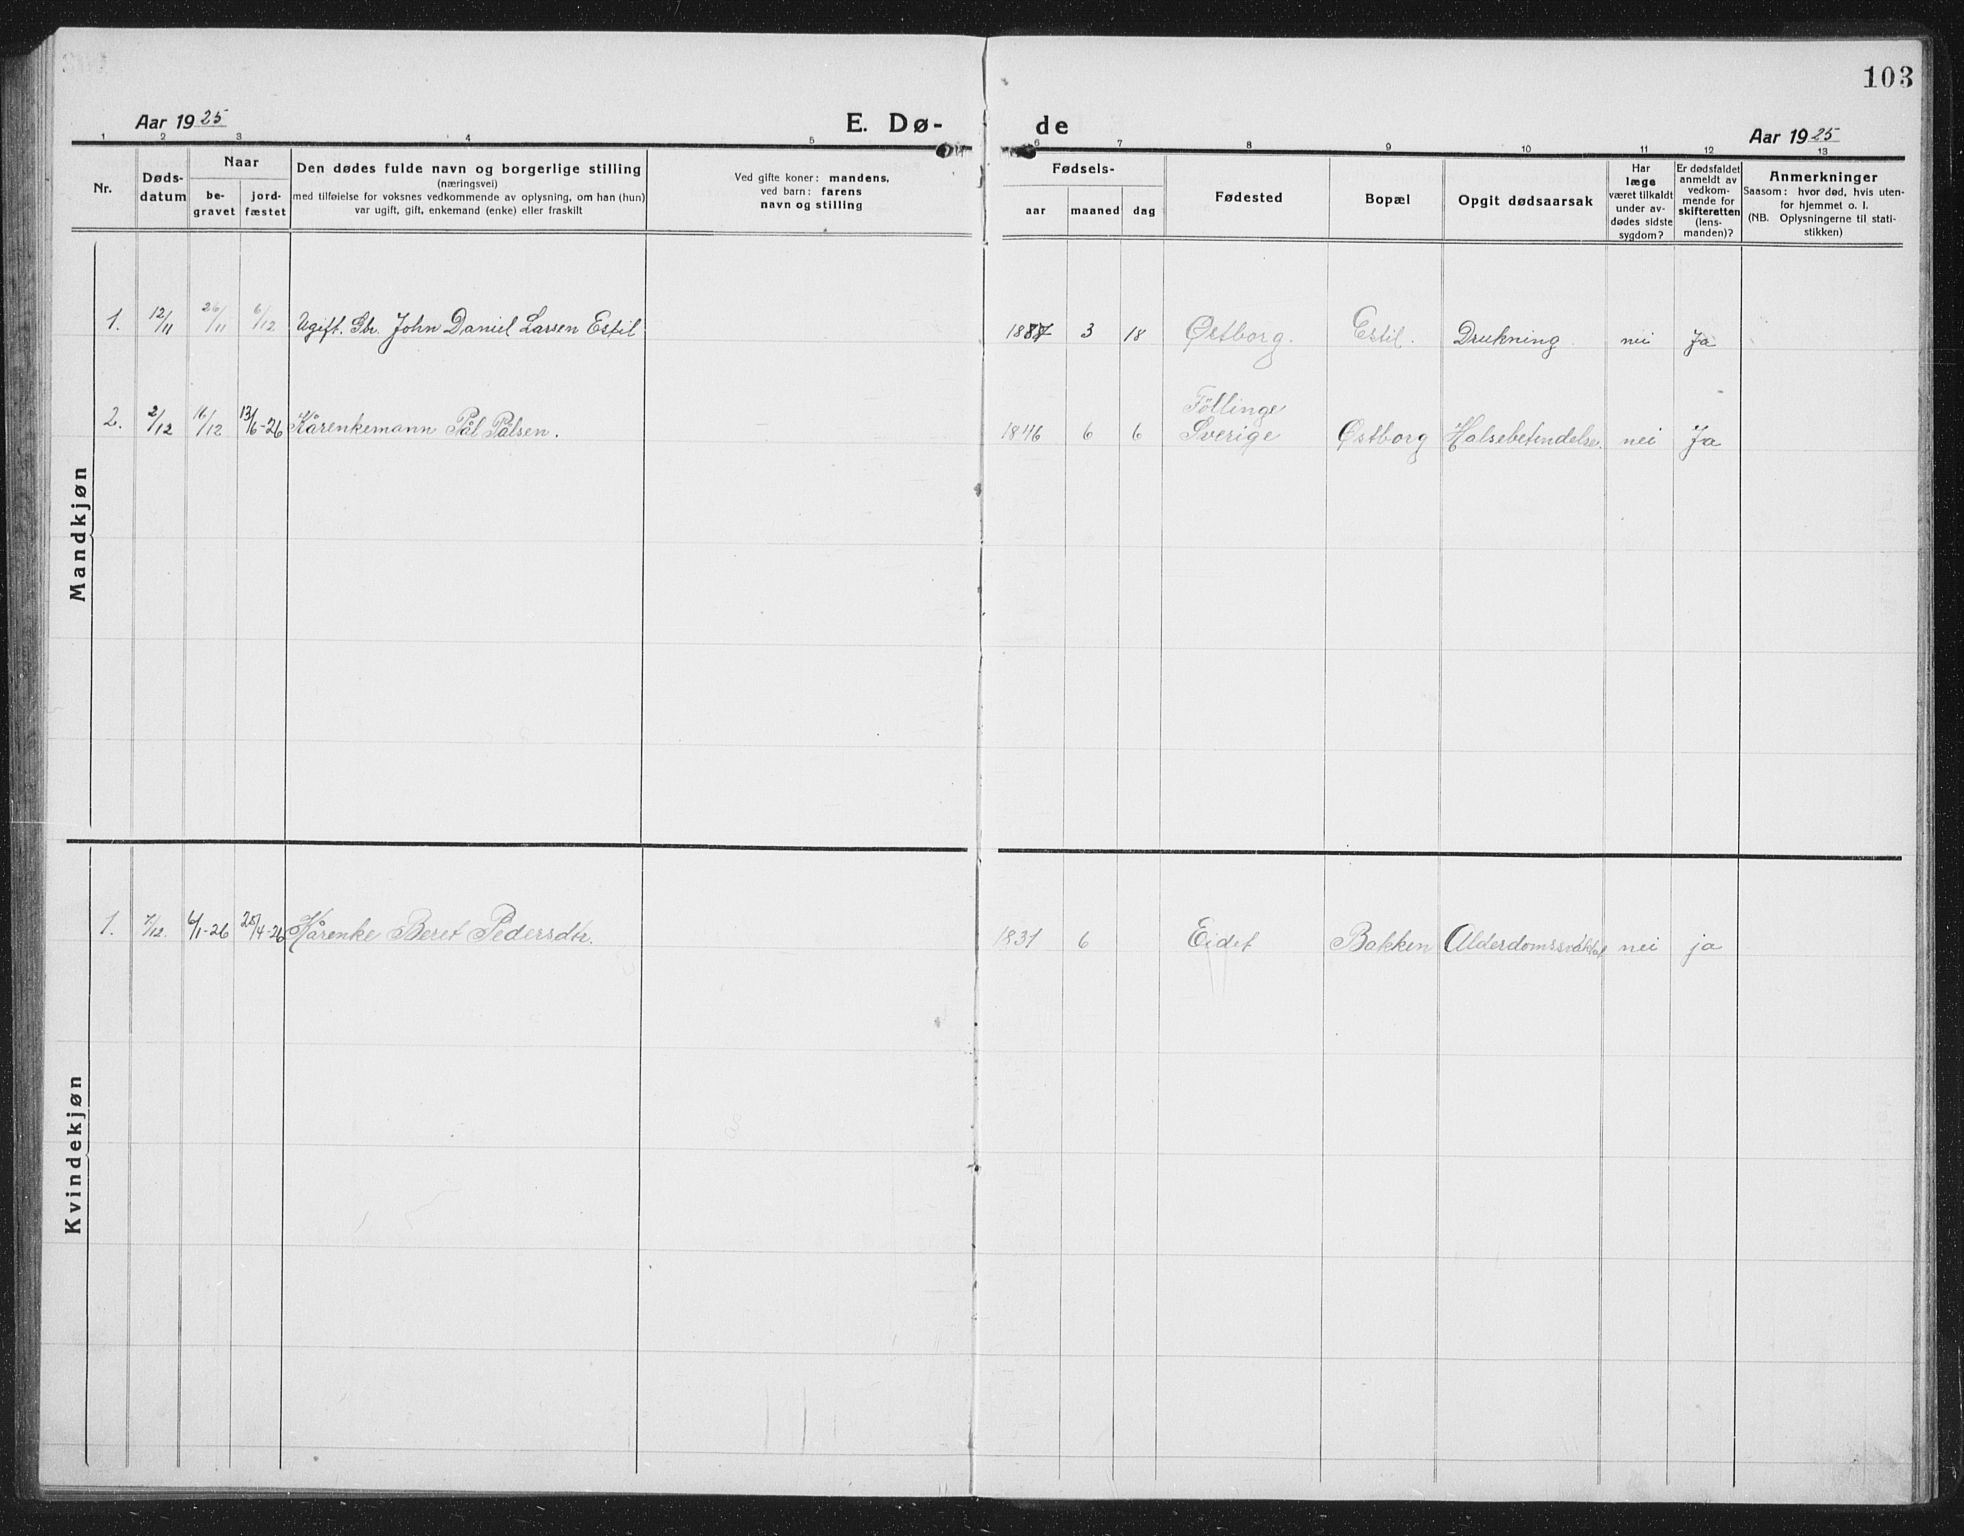 103
Aar 1925
E. Dø-
de
Aar 1925
1 2 3 4 5 6 7 8 9 10 11 12 13
Nr.
Døds-
datum
Naar
be-
gravet
jord-
fæstet
Den dødes fulde navn og borgerlige stilling
(næringsvei)
med tilføielse for voksnes vedkommende av oplysning, om han (hun)
var ugift, gift, enkemand (enke) eller fraskilt
Ved gifte koner: mandens,
ved barn: farens
navn og stilling
Fødsels-
aar maaned dag
Fødested
Bopæl
Opgit dødsaarsak
Har
læge
været tilkaldt
under av-
dødes sidste
sygdom?
Er dødsfaldet
anmeldt av
vedkom-
mende for
skifteretten
(lens-
manden)?
Anmerkninger
Saasom: hvor død, hvis uten-
for hjemmet o. l.
(NB. Oplysningerne til stati-
stikken)
Mandkjøn
1. 12/11 26/11 6/12 Ugift. Gbr. John Daniel Larsen Estil 1887 3 18 Østborg. Estil. Drukning. nei Ja
Föllinge
2. 2/12 16/12 13/6-26 Kårenkemann Pål Pålsen. 1846 6 6 Sverige Østborg Halsebetendelse. nei Ja
Kvindekjøn
1. 7/12. 6/1-26 25/4-26 Kårenke Beret Pedersdtr. 1831 6 Eidet Bakken nei ja